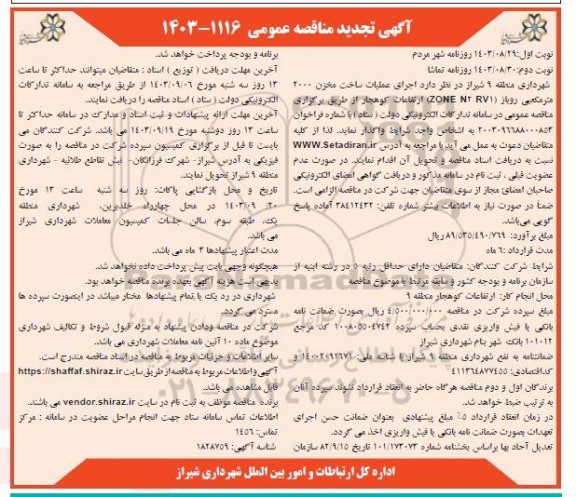 آگهی تجدید مناقصه عمومی ۱۱۱۶-۱۴۰۳
نوبت اول:۱۴۰۳/۰۸/۲۹ روزنامه شهر مردم
نوبت دوم:۱۴۰۳/۰۸/۳۰ روزنامه تماشا
شهرداری منطقه ۹ شیراز در نظر دارد اجرای عملیات ساخت مخزن ۲۰۰۰
مترمکعبی روباز (ZONE N2 RV11) ارتفاعات کوهجار از طریق برگزاری
مناقصه عمومی در سامانه تدارکات الکترونیکی دولت ( ستاد ) با شماره فراخوان
۲۰۰۳۰۹۶۶۸۸۰۰۰۸۵۳ به اشخاص واجد شرایط واگذار نماید. لذا از کلیه
متقاضیان دعوت به عمل می آید با مراجعه به آدرس WWW.Setadiran.ir
نسبت به دریافت اسناد مناقصه و تحویل آن اقدام نمایند. در صورت عدم
عضویت قبلی ، ثبت نام در سامانه مذکور و دریافت گواهی امضای الکترونیکی
صاحبان امضای مجاز از سوی متقاضیان جهت شرکت در مناقصه الزامی است.
ضمنا در صورت نیاز به اطلاعات بیشتر شماره تلفن: ۳۸۴۱۲۴۳۲ آماده پاسخ
گویی می‌باشد.
مبلغ برآورد: ۸۹/۵۳۵/۴۹۰/۷۶۹ ریال
مدت قرارداد :۶ ماه
شرایط شرکت کنندگان: متقاضیان دارای حداقل رتبه ۵ در رشته ابنیه از
سازمان برنامه و بودجه کشور و سابقه مرتبط با موضوع مناقصه
محل انجام کار: ارتفاعات کوهجار منطقه ۹
مبلغ سپرده شرکت در مناقصه: ۴/۵۰۰/۰۰۰/۰۰۰ ریال بصورت ضمانت نامه
بانکی یا فیش واریزی نقدی بحساب سپرده ۱۰۰۸۰۵۵۰۴۷۴۲ کد مرجع
۱۰۱۰۱۲ بانک شهر بنام شهرداری شیراز
ضمانتنامه به نفع شهرداری منطقه ۹ شیراز با شناسه ملی: ۱۴۰۰۲۰۹۱۶۷۱ و
کداقتصادی: ۴۱۱۳۶۴۸۷۷۴۵۵
برندگان اول و دوم مناقصه هرگاه حاضر به انعقاد قرارداد نشوند سپرده آنان
به ترتیب ضبط خواهد شد.
در زمان انعقاد قرارداد ۵٪ مبلغ پیشنهادی بعنوان ضمانت حسن اجرای
تعهدات بصورت ضمانت نامه بانکی یا فیش واریزی اخذ می گردد.
تعدیل آحاد بها براساس بخشنامه شماره ۱۰۱/۱۷۳۰۷۳ تاریخ ۸۲/۹/۱۵ سازمان
برنامه و بودجه پرداخت خواهد شد.
آخرین مهلت دریافت ( توزیع ) اسناد : متقاضیان میتوانند حداکثر تا ساعت
۱۳ روز سه شنبه مورخ ۱۴۰۳/۰۹/۰۶ از طریق مراجعه به سامانه تدارکات
الکترونیکی دولت ( ستاد ) اسناد مناقصه را دریافت نمایند.
آخرین مهلت ارائه پیشنهادات و ثبت اسناد و مدارک در سامانه حداکثر تا
ساعت ۱۳ روز دوشنبه مورخ ۱۴۰۳/۰۹/۱۹ می باشد. شرکت کنندگان می
بایست تا قبل از برگزاری کمیسیون سپرده شرکت در مناقصه را به صورت
فیزیکی به آدرس شیراز- شهرک فرزانگان- نبش تقاطع طلائیه - شهرداری
منطقه ۹ شیراز تحویل نمایند.
تاریخ و محل بازگشایی پاکات: روز سه شنبه ساعت ۱۳ مورخ
۱۴۰۳/۰۹/۲۰ در محل چهارراه خلدبرین، شهرداری منطقه
یک، طبقه سوم، سالن جلسات کمیسیون معاملات شهرداری شیراز
می باشد.
مدت اعتبار پیشنهادها ۳ ماه می‌باشد.
هیچگونه وجهی بابت پیش پرداخت داده نخواهد شد.
بدیهی است هزینه آگهی بعهده برنده مناقصه خواهد بود.
شهرداری در رد یک یا تمام پیشنهادها مختار میباشد در اینصورت سپرده ها
مسترد می گردد.
شرکت در مناقصه ودادن پیشنهاد به منزله قبول شروط و تکالیف شهرداری
موضوع ماده ۱۰ آئین نامه معاملات شهرداری می باشد.
سایر اطلاعات و جزئیات مربوط به مناقصه در اسناد مناقصه مندرج است.
آگهی و اطلاعات مربوط به مناقصه از طریق سایت https://shaffaf.shiraz.ir
قابل مشاهده می باشد.
برنده مناقصه موظف به ثبت نام در سایت vendor.shiraz.ir می باشند.
اطلاعات تماس سامانه ستاد جهت انجام مراحل عضویت در سامانه : مرکز
تماس: ۱۴۵۶
شناسه آگهی: ۱۸۲۸۷۵۹
اداره کل ارتباطات و امور بین الملل شهرداری شیراز